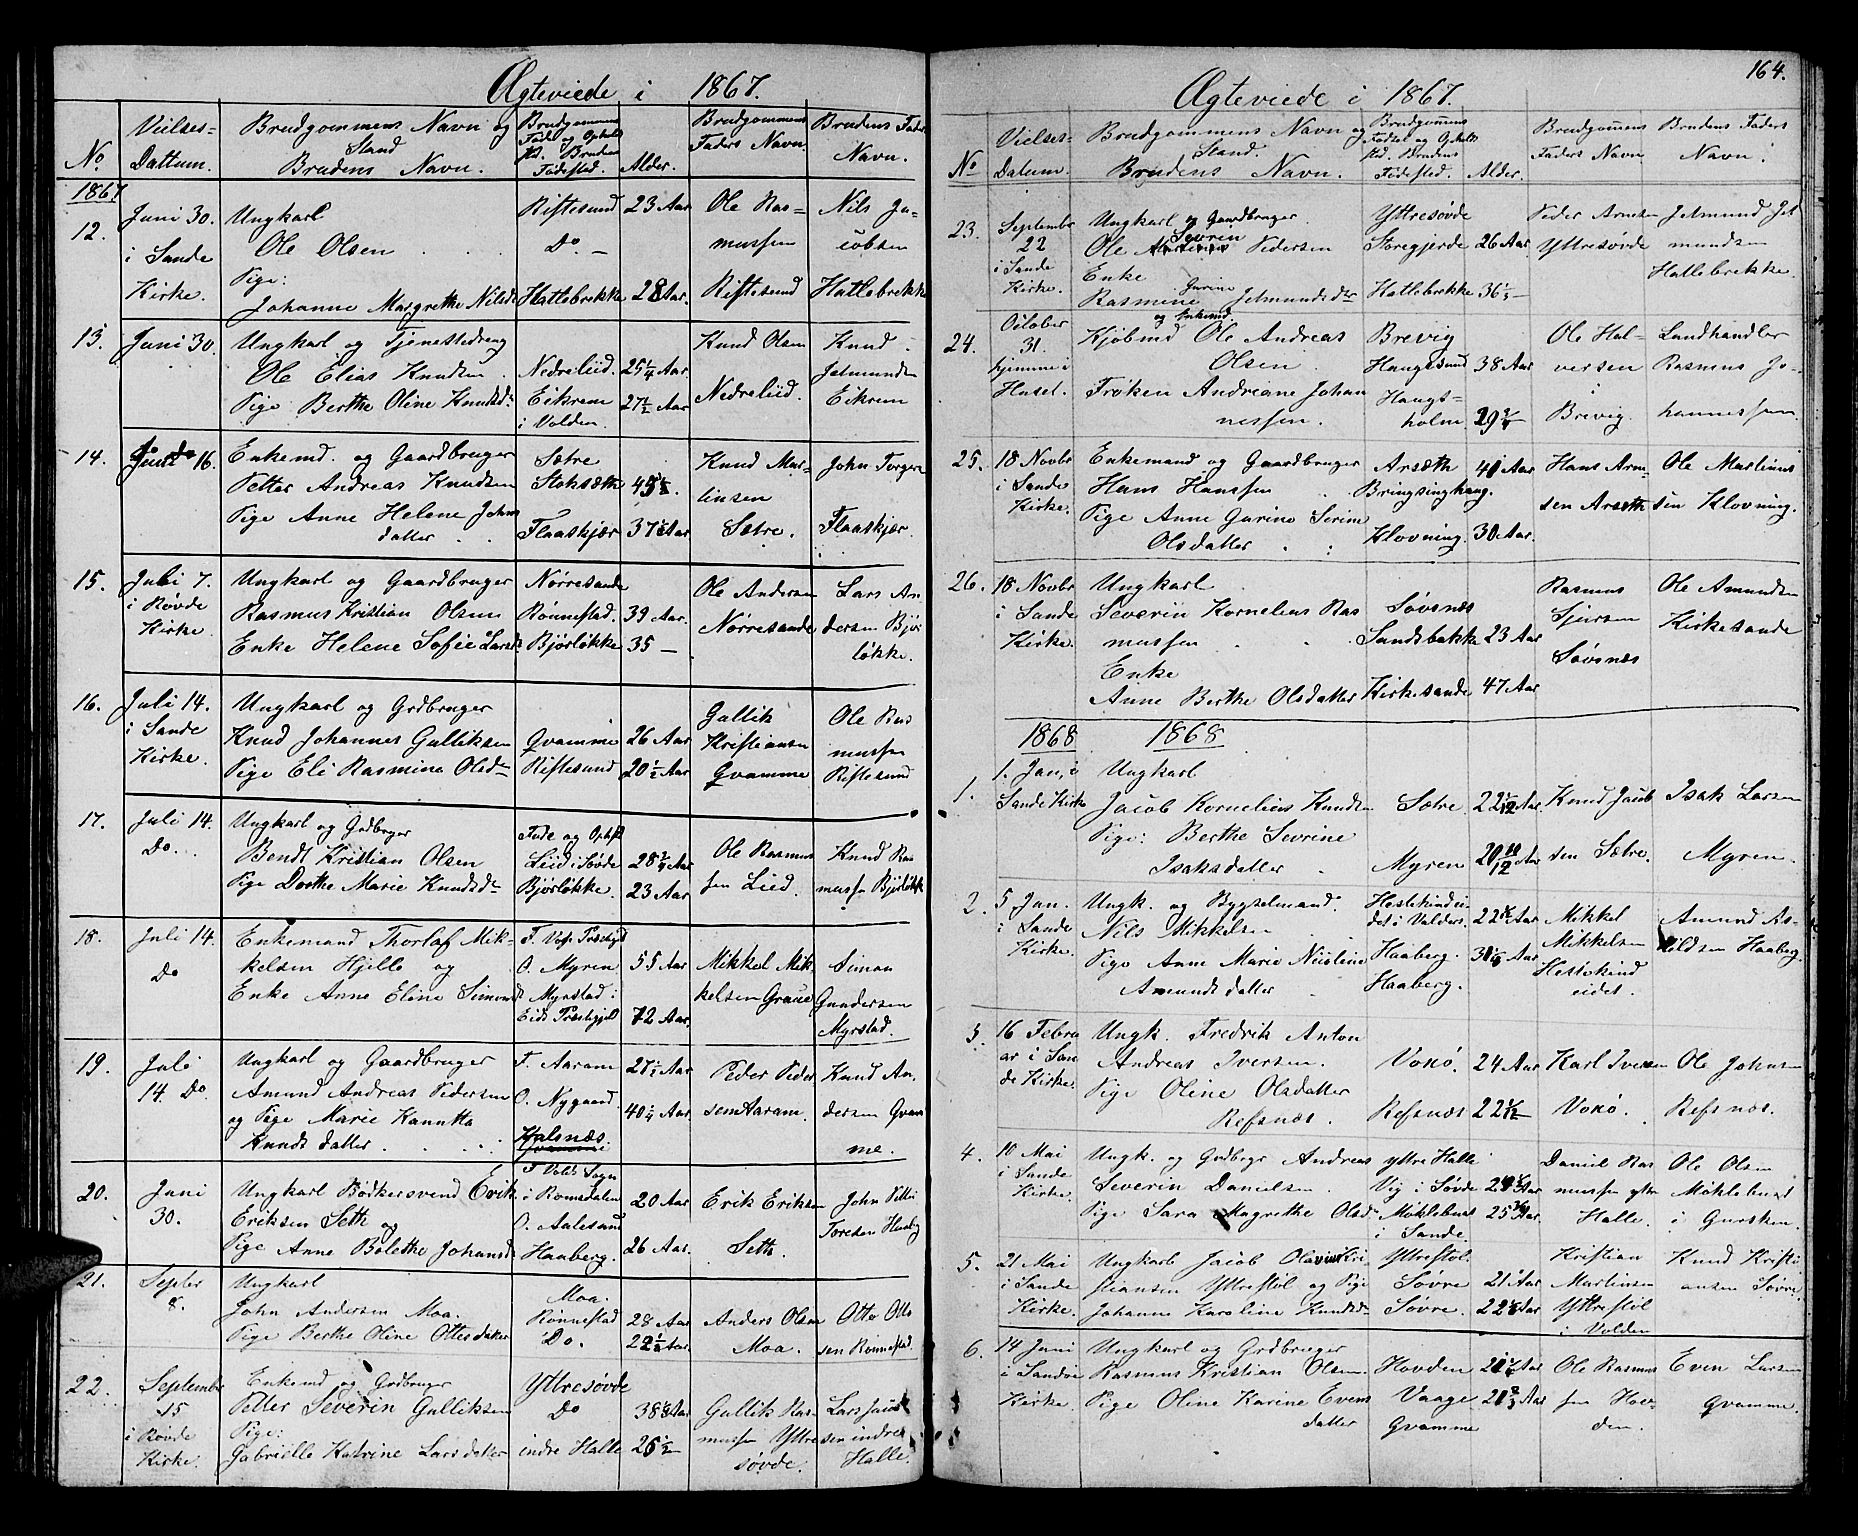 Ægteviede i 1867.
No
Vielses-
Dattum.
Brudgommens Navn og
Stand
Brudens Navn.
Brudgommens
Føde og Opholds
st. Brudens
Fødested.
Alder.
Brudgommens
Faders Navn.
Brudens Faders
Navn.
1867
12.
Juni 30.
i Sande
Kirke.
Ungkarl
Ole Olsen
Pige:
Johanne Margrethe Nilsdr
Riftesund
Do -
Hatlebrekke
23 Aar
28 Aar.
Ole Ras-
mussen
Riftesund
Nils Ja-
cobsen
Hatlebrekk
13.
Juni 30.
Ungkarl og Tjenestedreng
Ole Elias Knudsen
Pige Berthe Oline Knudsdr
Nedreliid.
Eikrem
i Volden.
25 1/4 Aar
27 1/2 Aar
Knud Olsen
Nedreliid.
Knud
Jetmundsen
Eikrem
14.
Do 16.
Enkemd. og Gaardbruger
Petter Andreas Knudsen
Pige Anne Helene Johns
datter
Sætre
Stoksæth
Flaaskjær
45 1/2.
37 1/2 Aar
Knud Mar-
tinsen
Sætre.
John Torger
Flaaskjær.
15.
Juli 7.
i Røvde
Kirke.
Ungkarl og Gaardbruger
Rasmus Kristian Olsen
Enke Helene Sofie Larsdr
Nørresande
Rønnestad.
Bjørløkke
39 Aar.
35 -
Ole Andersen
Nørresande
Lars An
dersen Bjør
løkke.
16.
Juli 14.
i Sande
Kirke.
Ungkarl og Grdbruger
Knud Johannes Gulliksen
Pige Eli Rasmine Olsdr
Qvamme
Riftesund
26 Aar
20 1/2 Aar
Gullik
Kristiansen
Qvamme
Ole Ras
mussen
Riftesund
17.
Juli 14.
Do.
Ungkarl og Grdbrger
Bendt Kristian Olsen
Pige Dorthe Marie Knudsdr
Føde og Ophst
Liid i Søvde
Bjørløkke.
28 3/4 Aar
23 Aar
Ole Rasmus
sen Lied.
Knud Ras
mussn Bjørløkk
18.
Juli 14.
Do
Enkemand Thorlaf Mik-
kelsen Hjelle og
Enke Anne Eline Simons
O. Myren
Myrstad i
Eids Præstegjel
55 Aar
72 Aar.
Mikkel Mik
kelsen Graue
Simon
Gundersen
Myrstad.
19.
Juli
14. Do
Ungkarl og Gaardbruger
Amund Andreas Pedersen
og Pige Marie Kanutta
Knudsdatter
F. Aaram
O. Nygaard
Halsnæs.
27 1/2 Aar
40 1/4 Aar.
Peder Peder
sen Aaram
Knud An
dersen Qvam
me.
20.
Juni
30.
Ungkarl Bødkersvend Erik
Eriksen Seth og
Pige Anne Bolethe Johansd
F. Volds Sogn
i Romsdalen
O. Aalesund
Haaberg.
20 Aar
26 Aar.
Erik Eriksen
Seth
John Petter
21.
Septbr
8.
Ungkarl
John Andersen Moa.
Pige Berthe Oline Ottesdatter
Moa.
Rønnestad
Do.
28 Aar
22 1/2 Aar.
Anders Olsen
Moa.
Otto Otto
sen Rønnestad.
22.
September
15
i Røvde
Kirke.
Enkemd og Grdbruger
Petter Severin Gulliksen
Pige:
Gabrielle Katrine Larsdatter
Yttresøvde
Do
indre Halle
38 1/2 Aar
26 1/2
Gullik Ras-
mussen Yttre
søvde.
Lars Jacob
sen indre
Halle.
164.
Ægteviede i 1867.
No
Vielses-
Datum.
Brudgommens Navn og
Stand.
Brudens Navn.
Brudgommens
Fødsel og Opholds
sted. Brudens
Fødested.
Alder.
Brudgommens
Faders Navn
Brudens Faders
Navn.
23.
September
22
i Sande
Kirke.
Ungkarl og Gaardbruger.
Ole Severin Pedersen
Enke
Rasmine Gurine Jetmundsdr
Yttresøvde
Storegjerde
Hatlebrekke
26 Aar
36 1/2 -
Peder Arnesen
Yttresøvde
Jetmund Jet
mundsen
Hatlebrekke.
24.
October
31.
hjemme i
Huset.
Kjøbmd og Enkemd. Ole Andreas
Olsen
Frøken Andreane Johan
nessen.
Brevig
Haugesund
Haugs-
holm
38 Aar
Ole Hal-
versen
Brevig.
Landhandler
Rasmus Jo-
hannessen
25.
18 Novbr
i Sande
Kirke.
Enkemand og Gaardbruger
Hans Hanssen
Pige Anne Gurine Serine
Olsdatter
Arsæth
Bringsinghaug.
Kløvning.
41 Aar
30 Aar.
Hans Arn-
sen Arsæth
Ole Martinus
sen Kløvning.
26.
18 Novbr
i Sande
Kirke.
Ungkarl
Severin Kornelius Ras
mussen
Enke
Anne Berthe Olsdatter
Søvsnæs
Sandsbakke
Kirkesande
23 Aar
47 Aar
Rasmus
Sjursen
Søvsnæs
Ole Amundsen
Kirkesande
1868
1868
1.
1. Jan, i
Sande Kirke
Ungkarl
Jacob Kornelius Knudsen
Pige: Berthe Sevrine
Isaksdatter
Sætre
Myren
20 10/12 Aar
Knud Jacob
sen Sætre.
Isak Larsen
Myren.
2.
5 Jan.
i Sande
Kirke.
Ungk. og Bygselmand.
Nils Mikkelsen
Pige Anne Marie Nicoline
Amundsdatter
Haaberg.
Haaberg.
Mikkel
Mikkelsen
Hestekind
eidet.
Amund As-
kildsen Haaberg
3.
16 Febru
ar i San
de Kirke.
Ungk. Fredrik Anton
Andreas Iversen.
Pige Oline Olsdatter
Refsnæs.
Voksø.
Refsnæs
24 Aar
Karl Iversen
Voksø.
Ole Johnsen
Refsnæs.
4.
10 Mai
i Sande
Kirke.
Ungk. og Grdbrgr Andreas
Severin Danielsen.
Pige Sara Margrethe Olsd
yttre Halle
Vig i Søvde
Møklebust
i Sande.
Daniel Ras
mussen yttre
Halle.
Ole Olsen
Møklebust
i Gursken.
5.
21 Mai
i Sande
Kirke.
Ungkarl Jacob Olavius Kri
stiansen Yttrestøl og Pige
Johanne Karoline Knudsd
Yttrestøl.
Søvre
Søvre.
21 Aar
Kristian
Martinsen
Yttrestøl
i Volden
Knud Kristi
ansen Søvre.
6.
14 Juni
i Sande
Kirke.
Ungkarl og Grdbruger
Rasmus Kristian Olsen.
Pige Oline Karine Evens
datter
Hovden
Vaage
Qvamme
Ole Rasmus
sen Hov-
den.
Even Larsen
Qvamme.